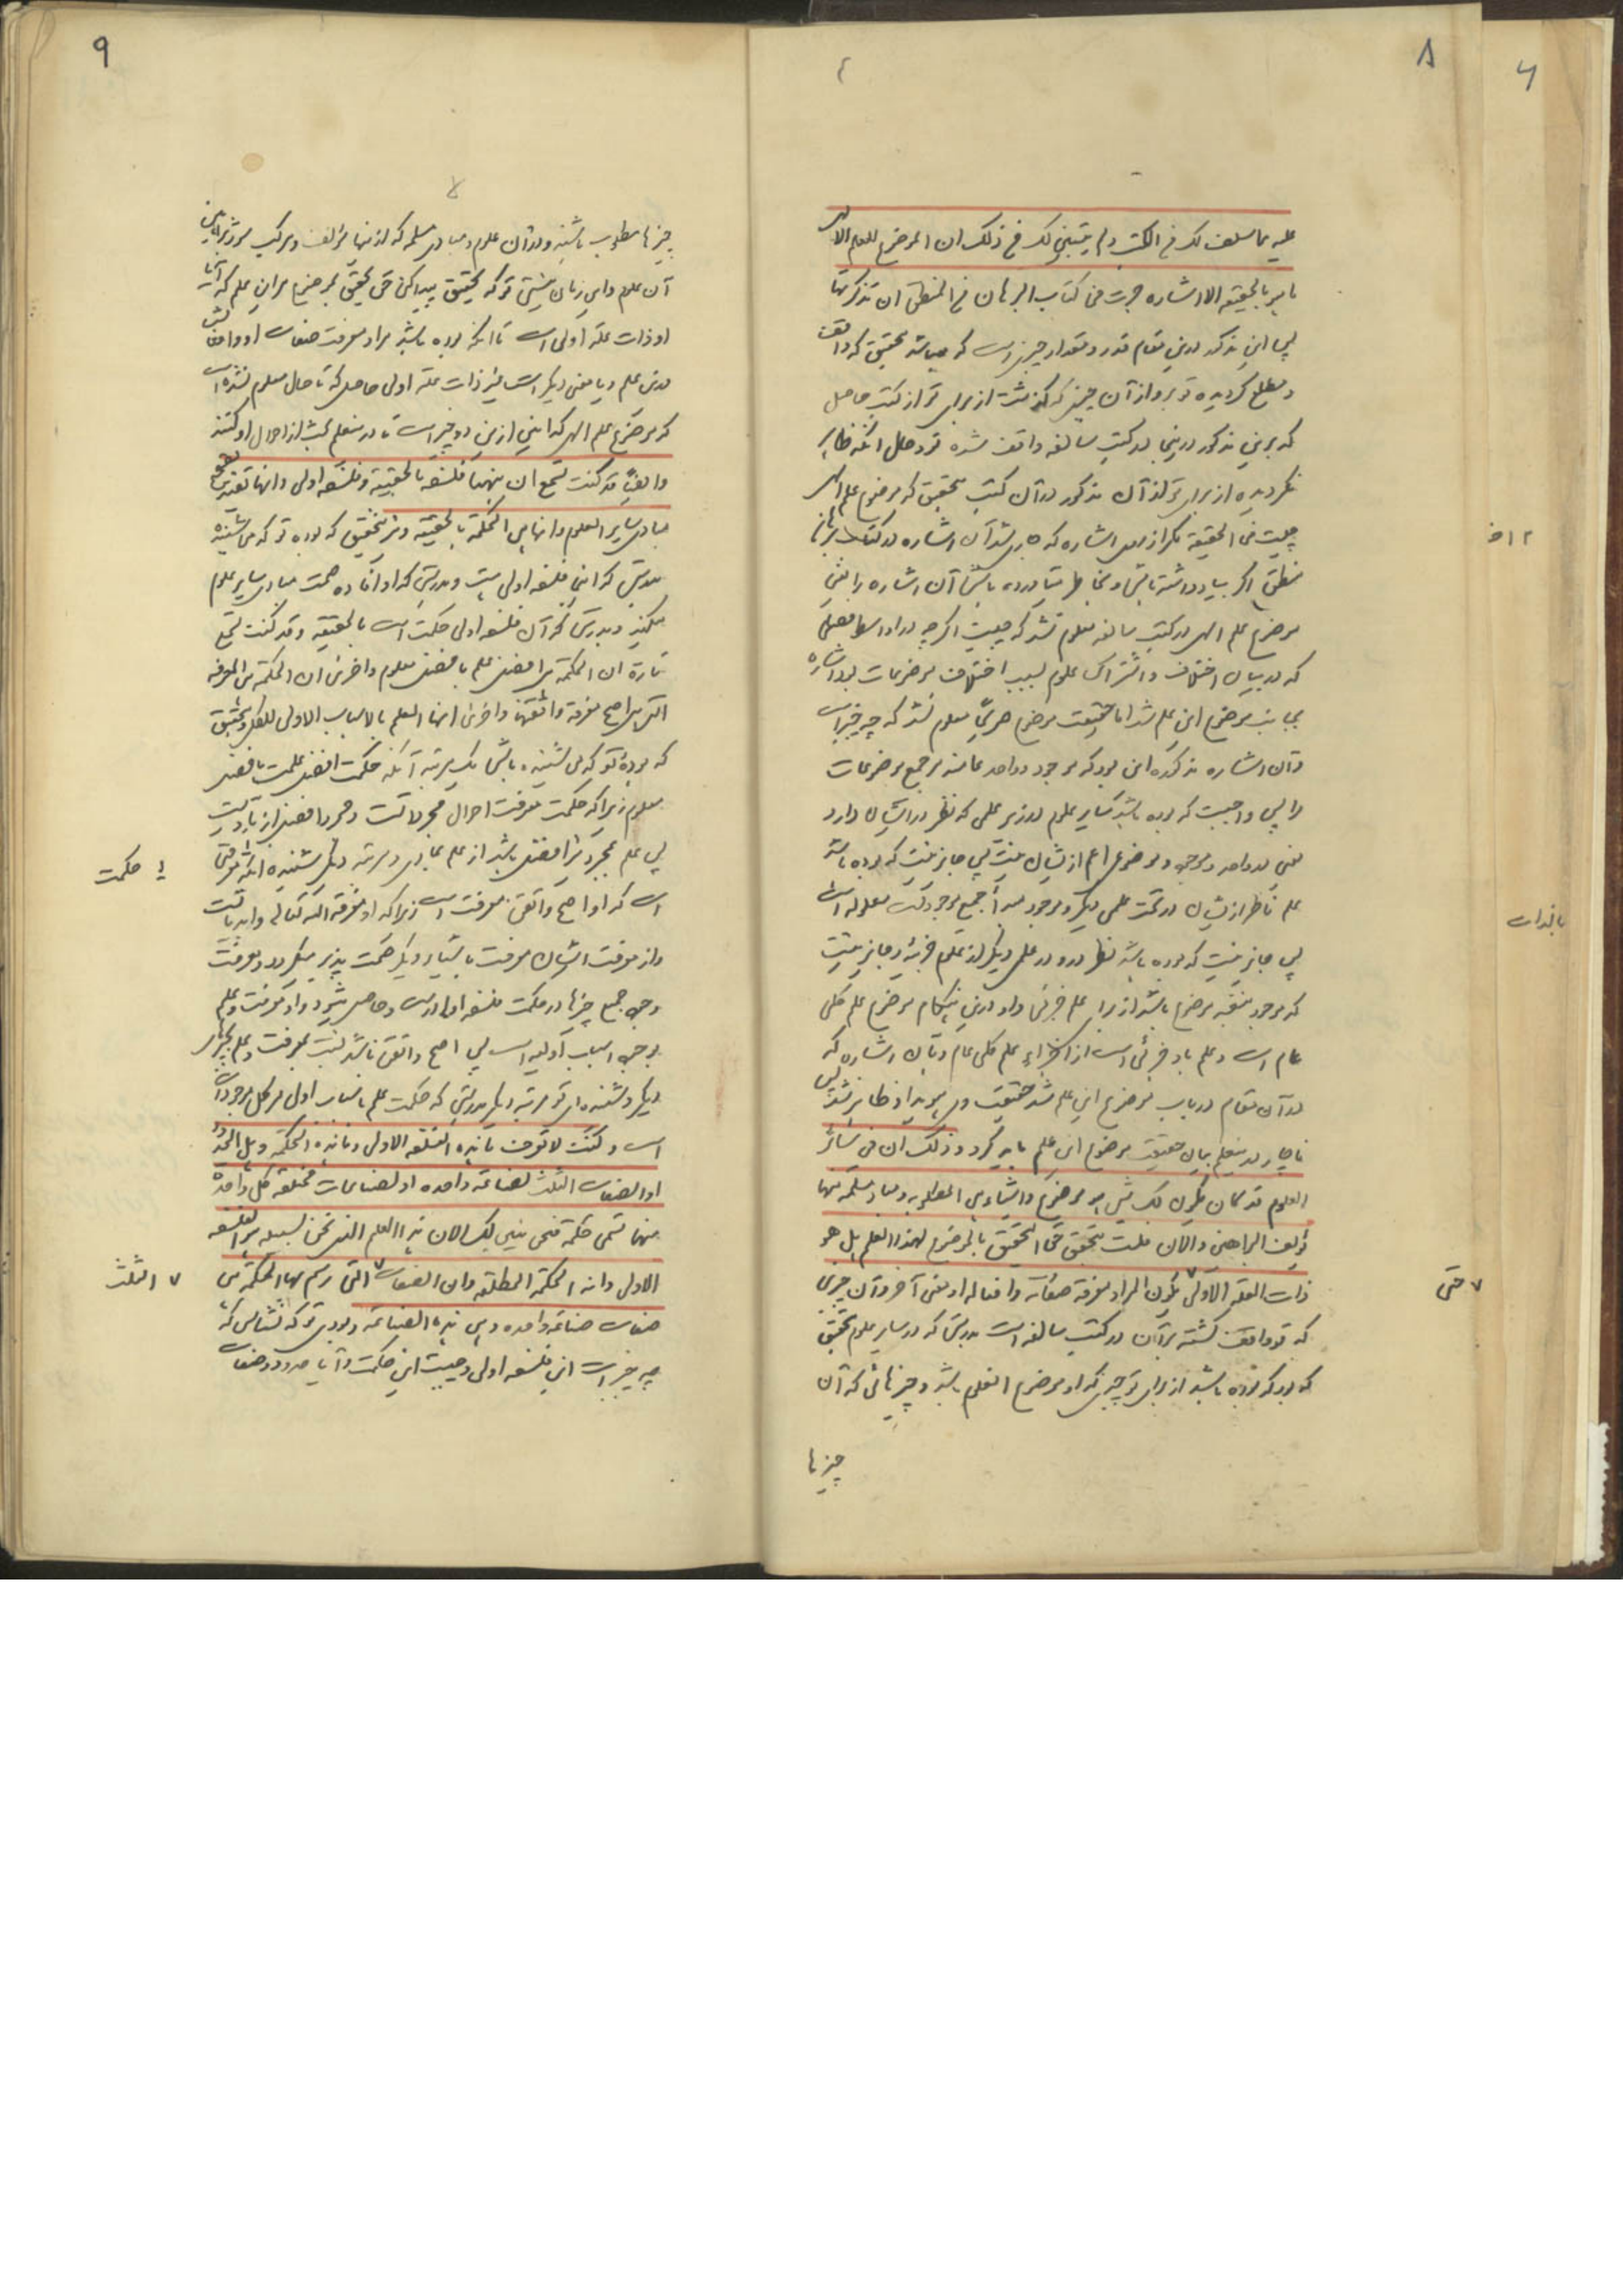 ۸
علیه مما سلف لک فی الکتب و لم یتبین لک فی ذلک ان الموضوع للعلم الالهی
ما هو بالحقیقة الا اشارة جرت فی کتاب البرهان فی المنطق ان تذکرتها
پس این مذکور درین مقام قدر و مقدار چیزیست که میباشد بتحقیق که واقف
و مطلع گردیده تو برو از آن چیزی که گذشت از برای تو از کتب حاصل
که برین مذکور درینجا در کتب سالفه واقف شده تو و حال آنکه ظاهر
نگردیده از برای تو از آن مذکور در آن کتب بتحقیق که موضوع علم الهی
چیست فی الحقیقة مگر از روی اشاره که جاری شد آن اشاره در کتاب برهان
منطق اگر بیاد داشته باشی و بخاطر بیاورده باشی آن اشاره را یعنی
موضوع علم الهی در کتب سالفه معلوم نشد که چیست اگر چه در
که در بیان اختلاف و اشتراک علوم بسبب اختلاف موضوعات بود اشاره
بجانب موضوع این علم شد اما حقیقت موضوع صریحا معلوم نشد که چه چیز است
و آن اشاره مذکوره این بود که موجود و واحد عامند مر جمیع موضوعات
را پس واجبست که بوده باشد سایر علوم در زیر علمی که نظر در ایشان دارد
یعنی در واحد و موجود و موضوعی اعم از ایشان نیست پس جایز نیست که بوده باشد
علم ناظر از ایشان در تحت علمی دیگر و موجود مبدأ جمیع موجودات معلوله است
پس جایز نیست که بوده باشد نظر درو در علمی دیگر از علوم جزئیه و جایز نیست
که موجود بنفسه موضوع باشد از برای علم جزئی و او درین هنگام موضوع علم کلی
عام است و علم باو جزئی است از اجزاء علم کلی عام و بآن اشاره که
در آن مقام در باب موضوع این علم شد حقیقت وی هویدا و ظاهر نشد پس
ناچار درین علم بیان حقیقت موضوع این علم باید کرد و ذلک ان فی سائر
العلوم قد کان یکون لک شیء هو موضوع و اشیاء هی المطلوبة و مبادی مسلمة منها
تؤلف البراهین و الآن فلست تحقق حق التحقیق ما الموضوع لهذا العلم بل هو
ذات العلة الاولی یکون المراد معرفة صفاته و افعاله او معنی آخر و آن چیزی
که تو واقف گشته بر آن در کتب سالفه است بدرستی که در سایر علوم بتحقیق
که بود که بوده باشد از برای تو چیزی که او موضوع آنعلم باشد و چیزهائی که آن
چیزها
۷ حتی
۹
چیزها مطلوب باشند و در آن علوم و مبادی مسلمه که از اینها مؤلف و مرکب میشود براهین
آن علوم و این زمان نیستی تو که تحقیق پیدا کنی حق تحقیق موضوع مر این علم که آیا
او ذات علة اولی است تا آنکه بوده باشد مراد معرفت صفات او و افعالش
درین علم و یا معنی دیگر است غیر ذات علة اولی حاصل که تا حال معلوم نشده است
که موضوع علم الهی کدامین ازین دو چیز است تا درین علم بحث از احوال او کنند
و ایضا قد کنت تسمع ان ههنا فلسفة بالحقیقة و فلسفة اولی و انها تفید تصحیح
مبادی سایر العلوم و انها هی الحکمة بالحقیقة و نیز بتحقیق که بوده تو که می‌شنیده
بدرستی که این فلسفه اولی است و بدرستی که او افاده صحت مبادی سایر علوم
میکند و بدرستی که آن فلسفه اولی حکمت است بالحقیقة و قد کنت تسمع
تارة ان الحکمة هی افضل علم بافضل معلوم و اخری ان الحکمة هی المعرفة
التی هی اصح معرفة و اتقنها و اخری انها العلم بالاسباب الاولی للکل و بتحقیق
که بودهٔ تو که می شنیده باشی یک مرتبه آنکه حکمت افضل علمست بافضل
معلوم زیرا که حکمت معرفت احوال مجرداتست و مجرد افضل از مادیست
پس علم بمجرد نیز افضل باشد از علم بمادی و مرتبه دیگر شنیده آنکه معرفتی
است که او اصح و اتقن معرفت است زیرا که او معرفة اله تعالی
و از معرفت ایشان معرفت باشیاء دیگر صحت پذیر میگردد و معرفت
وجود جمیع چیزها در حکمت فلسفه اولی است و حاصل میشود و او معرفت و علم
بوجود اسباب اولیه است پس اصح و اتقن باشد نسبت بمعرفت و علم بچیزهای
دیگر و شنیده‌ای تو مرتبه دیگر بدرستی که حکمت علم باسباب اولی مر کل موجودات
است و کنت لا تعرف ما هذه الفلسفة الاولی و ما هذه الحکمة و هل الحدود
او الصفات الثلث لصناعة واحدة او لصناعات مختلفة کل واحدة
منها تسمی حکمة فنحن نبین لک الان ان هذا العلم الذی نحن بسبیله هو الفلسفة
الاولی و انه الحکمة المطلقة و ان الصفات ۷ التی رسم بها الحکمة هی
صفات صناعة واحدة و هی هذه الصناعة و بودی تو که نشناسی که
چه چیز است این فلسفه اولی و چیست این حکمت و آیا حدود و صفات
یا حکمت
۷ الثلث